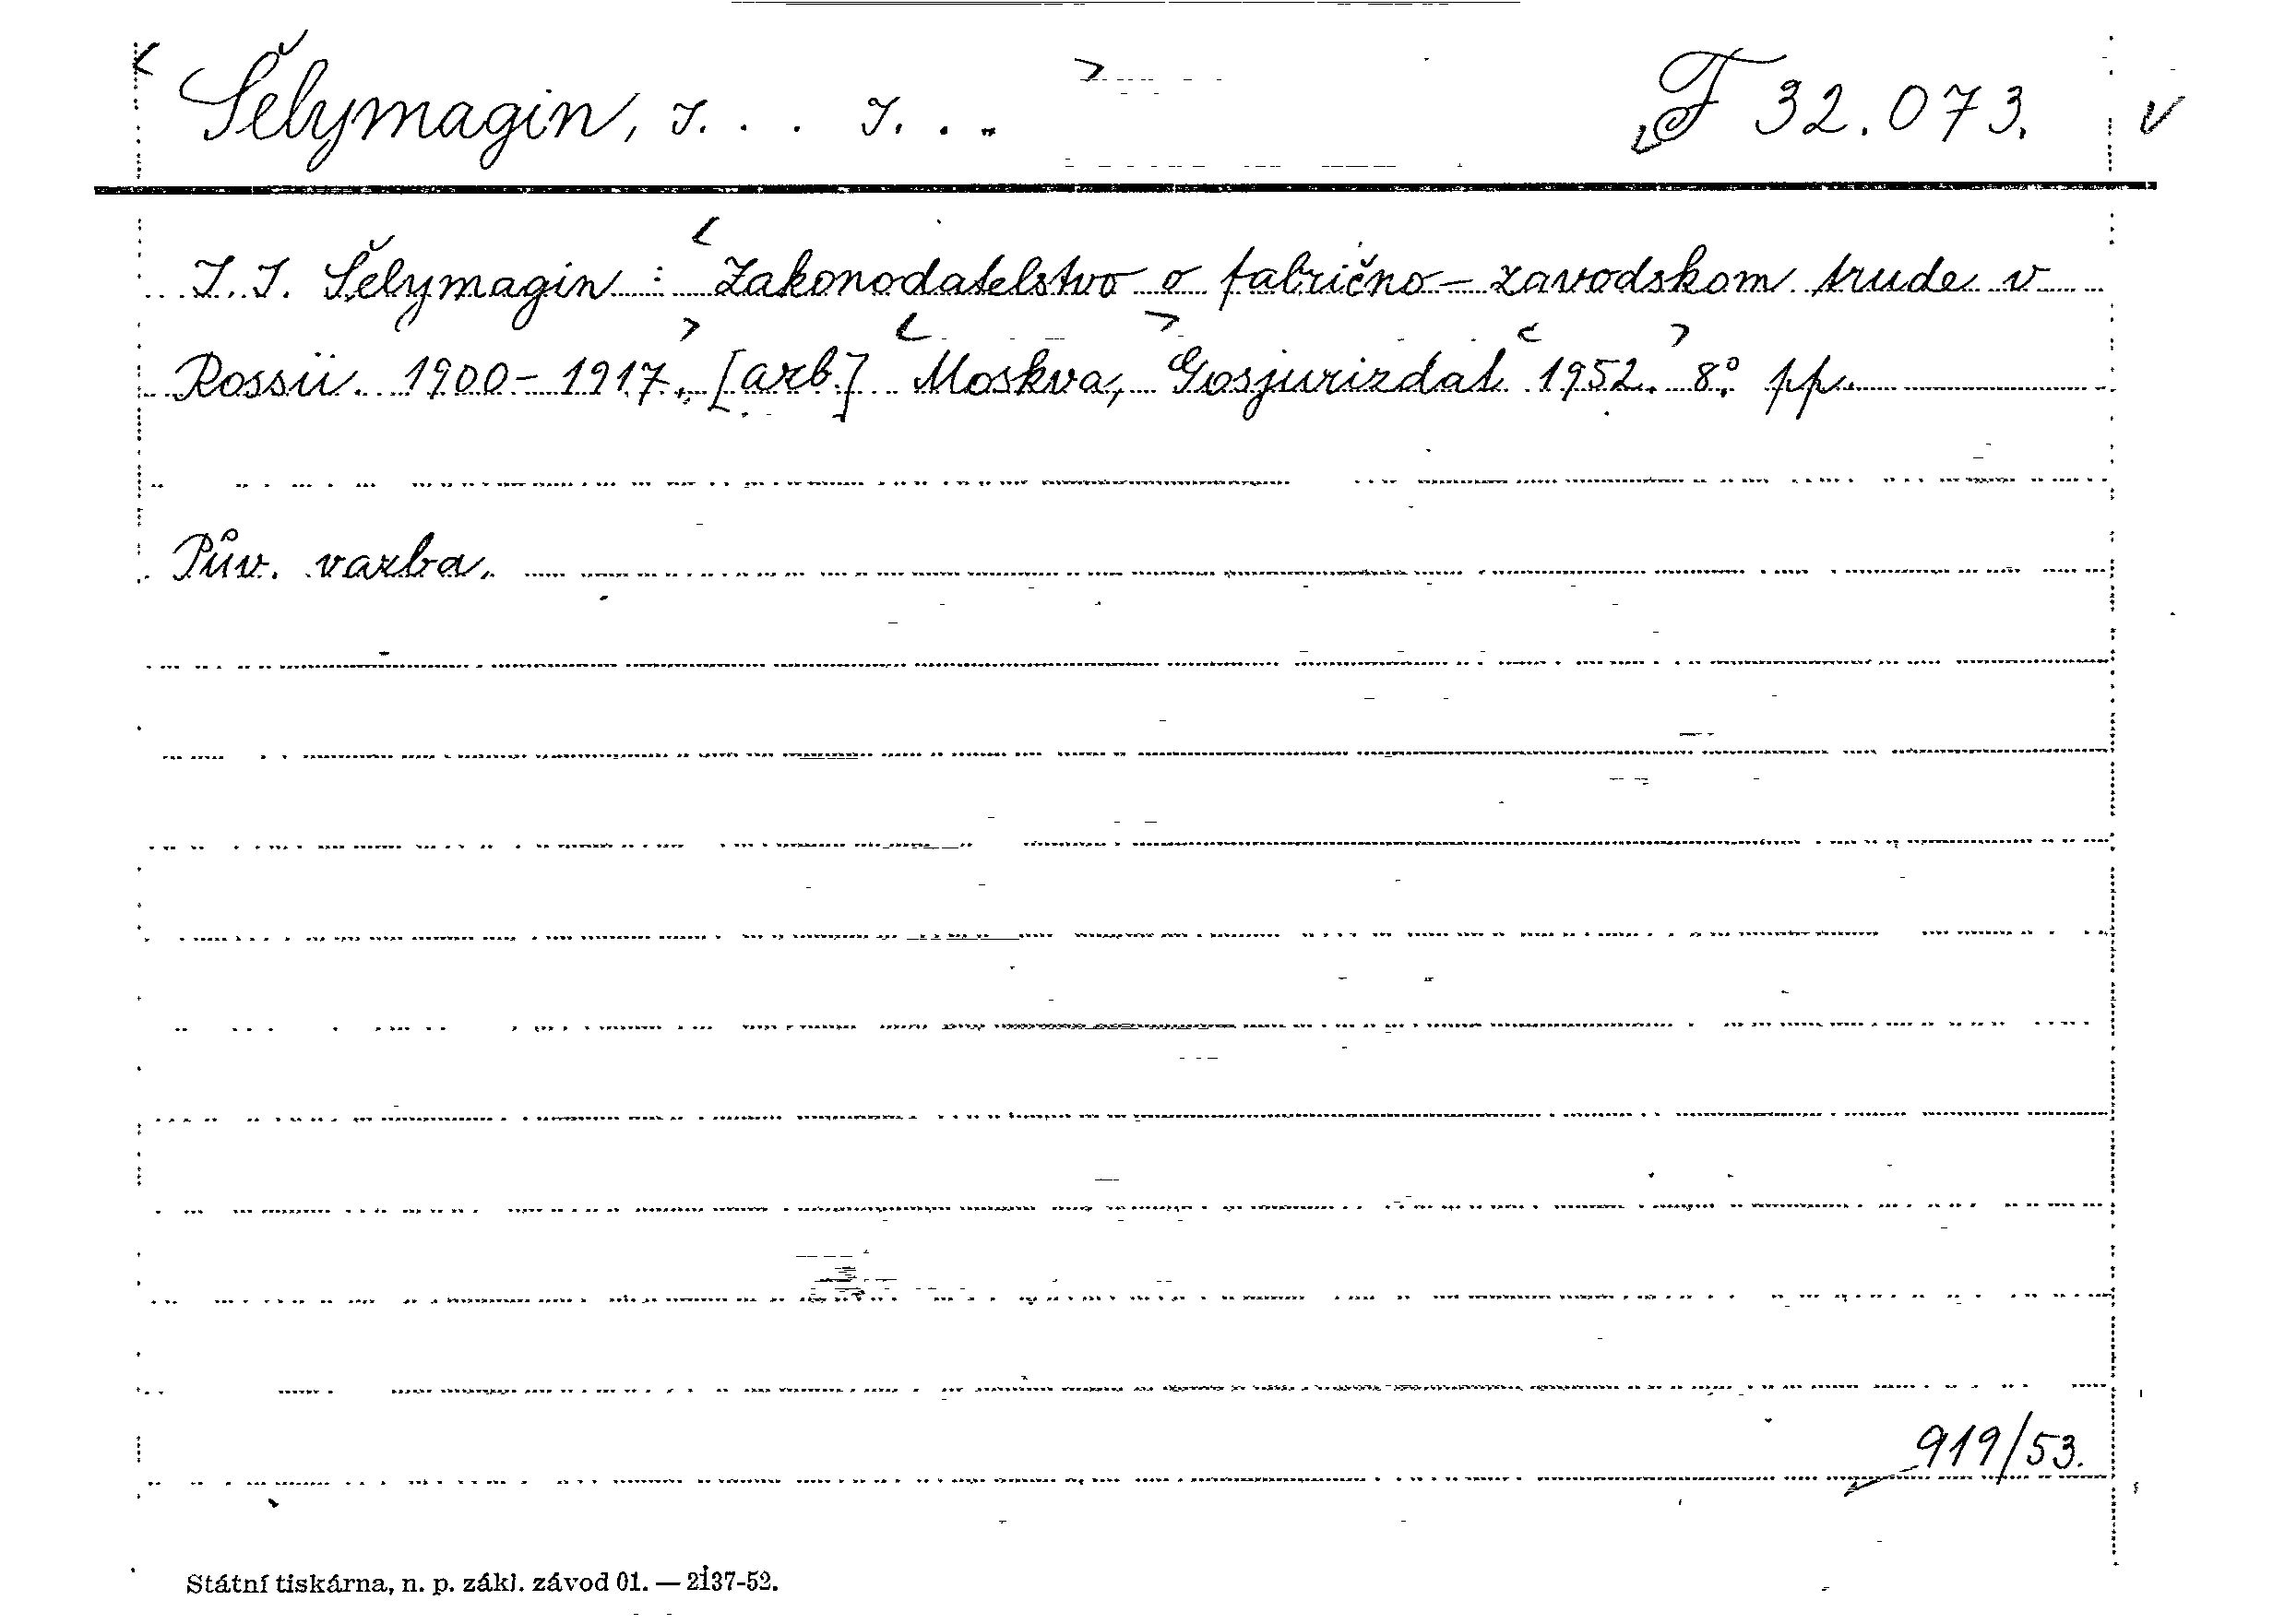 Šelymagin, I. . . I. . . F 32.073. v
I. I. Šelymagin : Zakonodatelstvo o fabrično – zavodskom trude v
Rossii. 1900 – 1917. [azb.] Moskva, Gosjurizdat 1952. 8° pp.
Pův. vazba.
919/53.
Státní tiskárna, n. p. zákl. závod 01. — 2137-52.